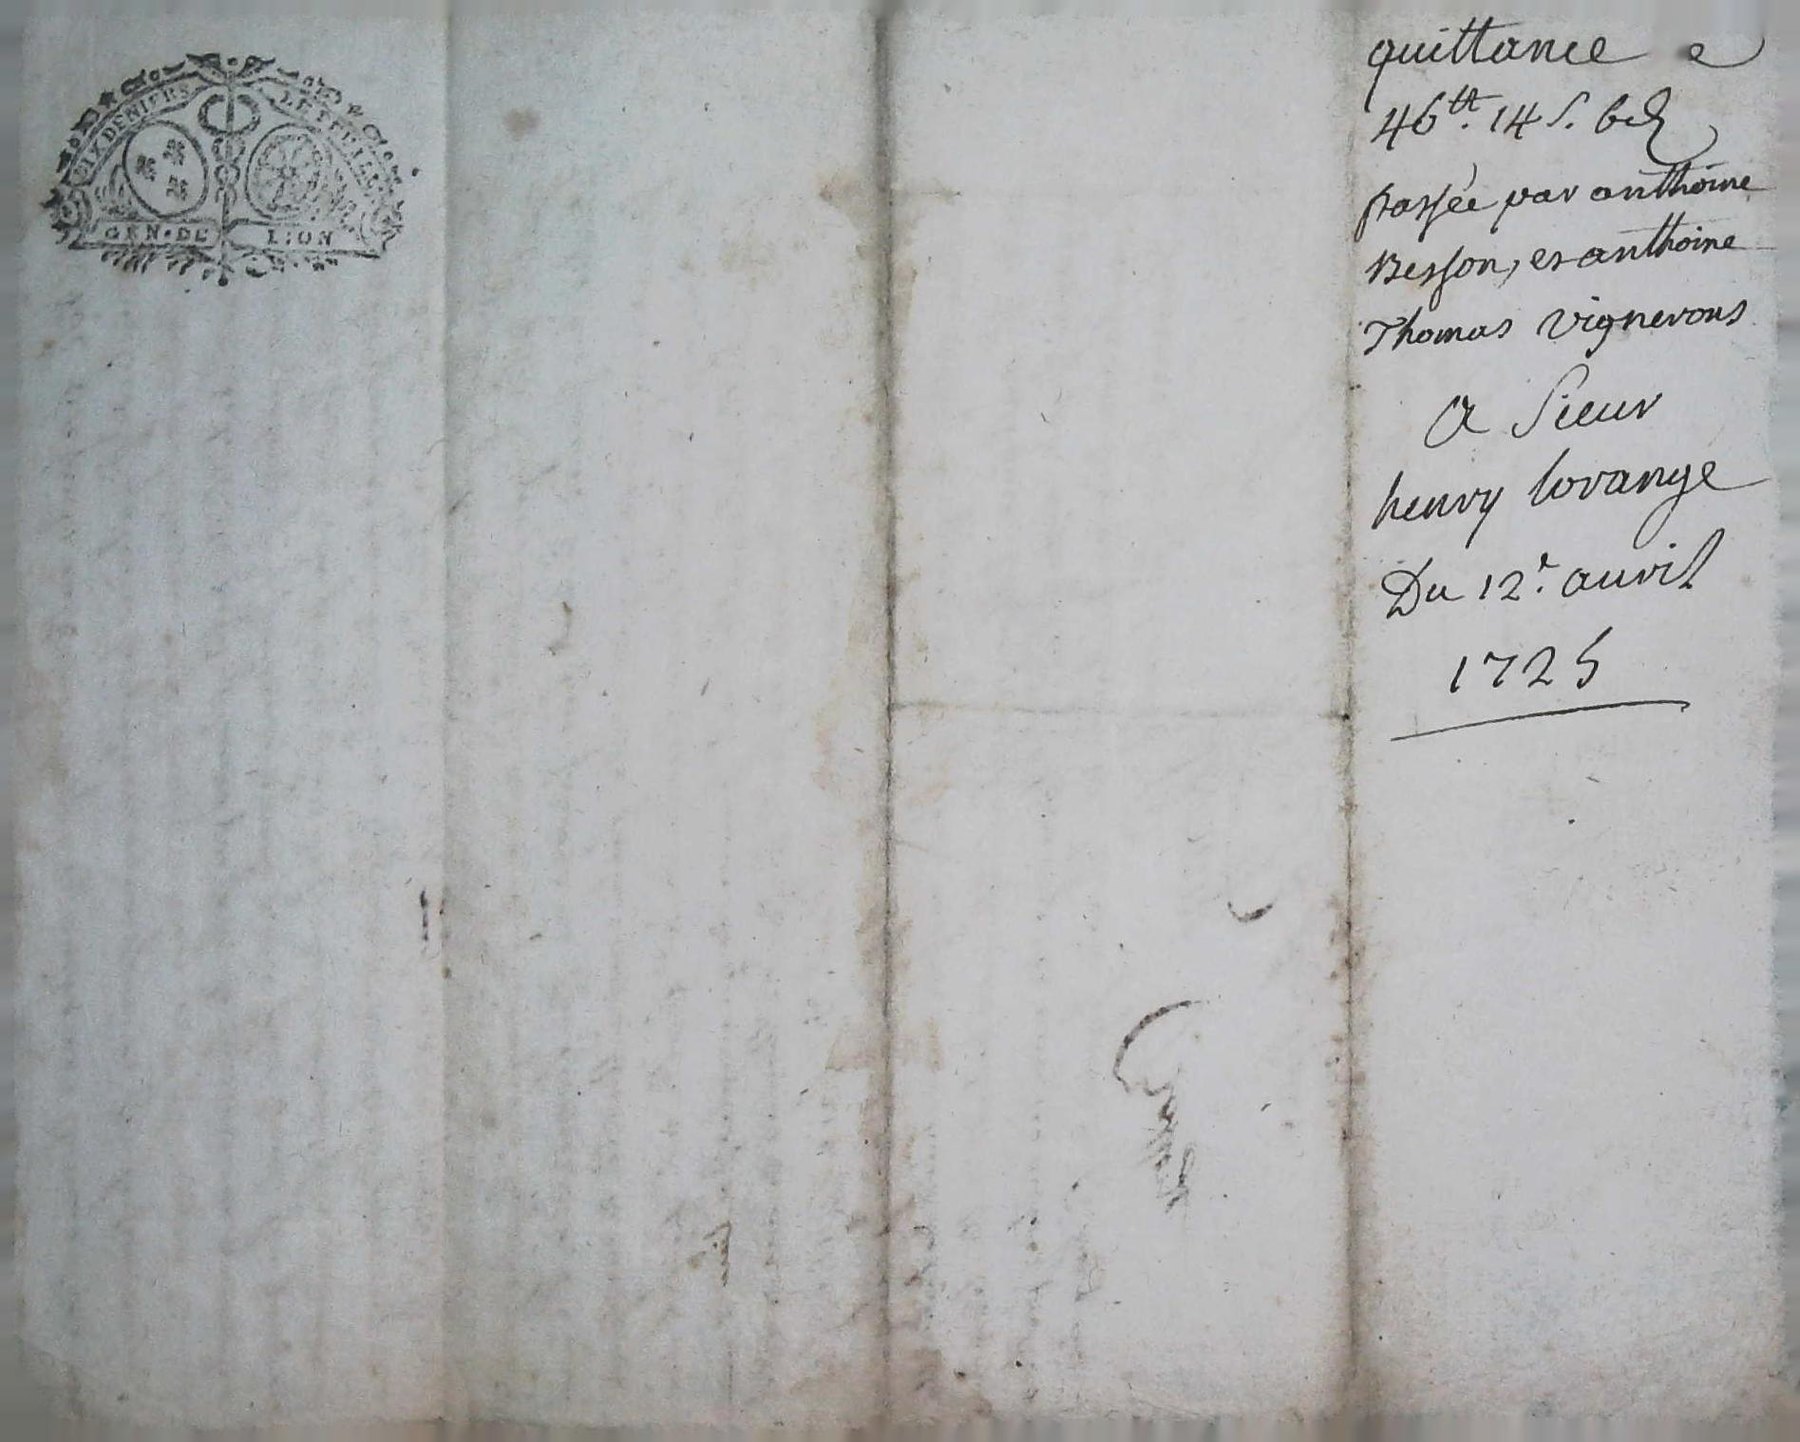 SIX DENIERS LE FEUILLET
GEN. DE LION
quittance
46tt. 14 s. 6d
passée par anthoine
Besson, et anthoine
Thomas vignerons
a sieur
henry lorange
Du 12e auril
1725